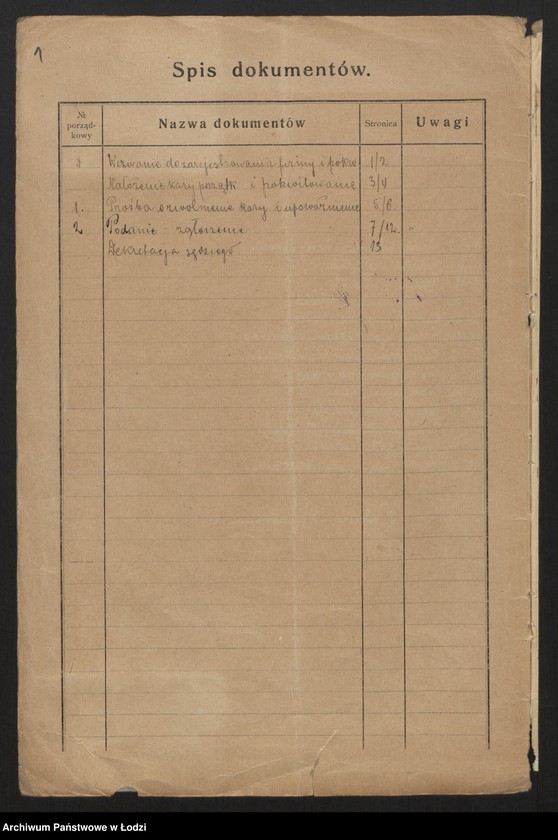 1
Spis dokumentów.
№ porząd-kowy Nazwa dokumentów Stronica Uwagi
Wezwanie do zarejestrowania firmy i pokw 1/2
Nałożenie kary porządk. i pokwitowanie 3/4
1. Prośba o zwolnienie kary i upoważnienie 5/6
2 Podanie zgłoszenie 7/12 "
Dekretacja sędziego 13
Archiwum Państwowe w Łodzi